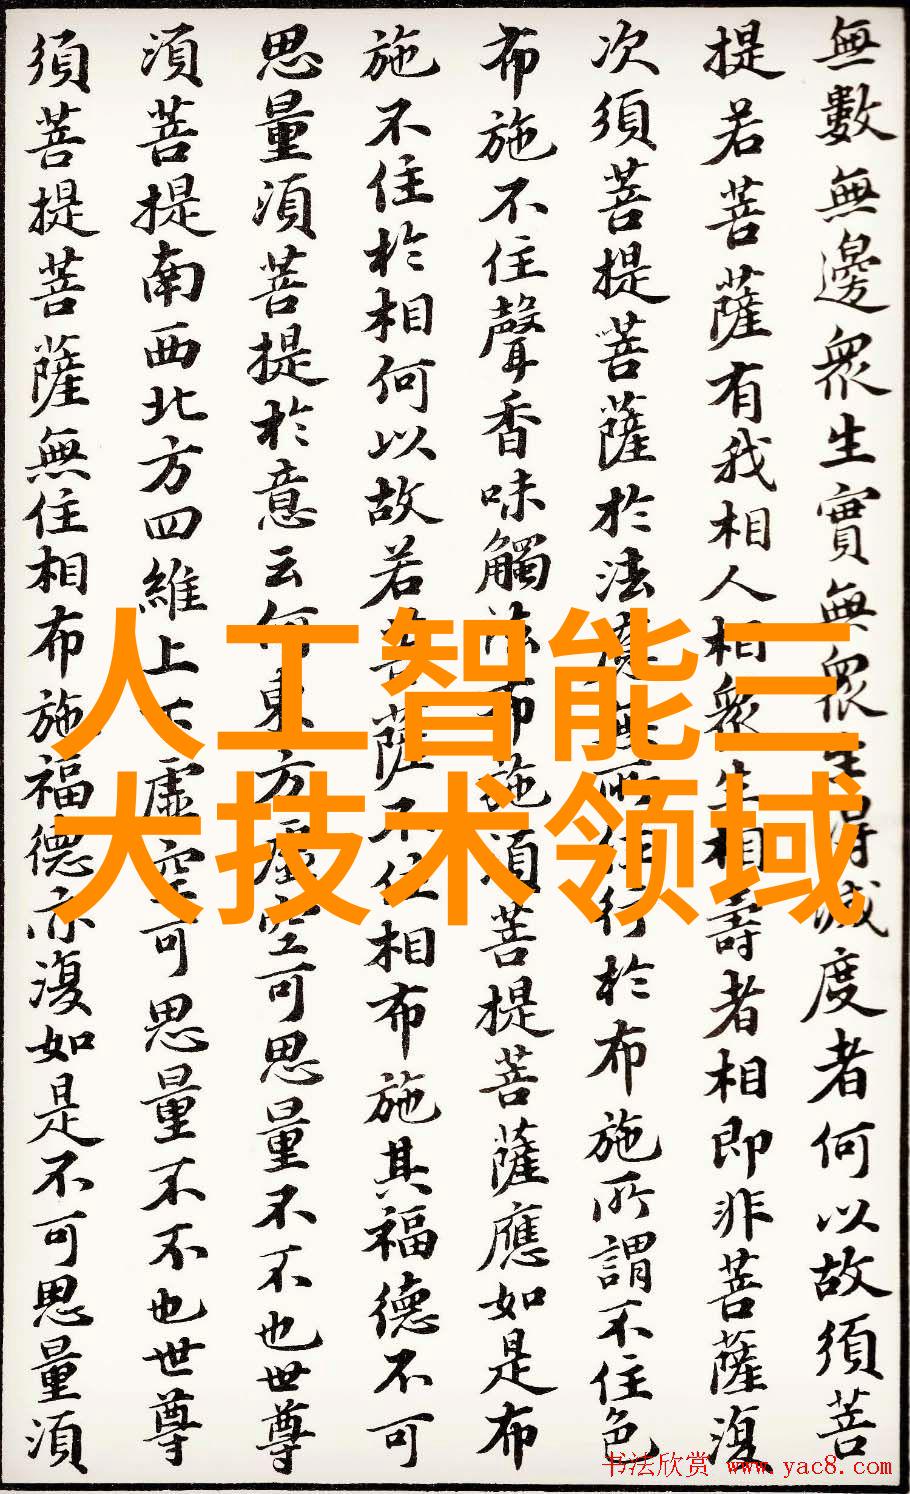 無數無邊眾生實無眾生得滅度者何以故須菩
提若菩薩有我相人相眾生相壽者相即非菩薩復
次須菩提菩薩於法應無所住行於布施所謂不住色
布施不住聲香味觸法布施須菩提菩薩應如是布
施不住於相何以故若菩薩不住相布施其福德不可
思量須菩提於意云何東方虛空可思量不不也世尊
須菩提南西北方四維上下虛空可思量不不也世尊
須菩提菩薩無住相布施福德亦復如是不可思量須
人工智能三
大技术领域
书法欣赏 www.yac8.com